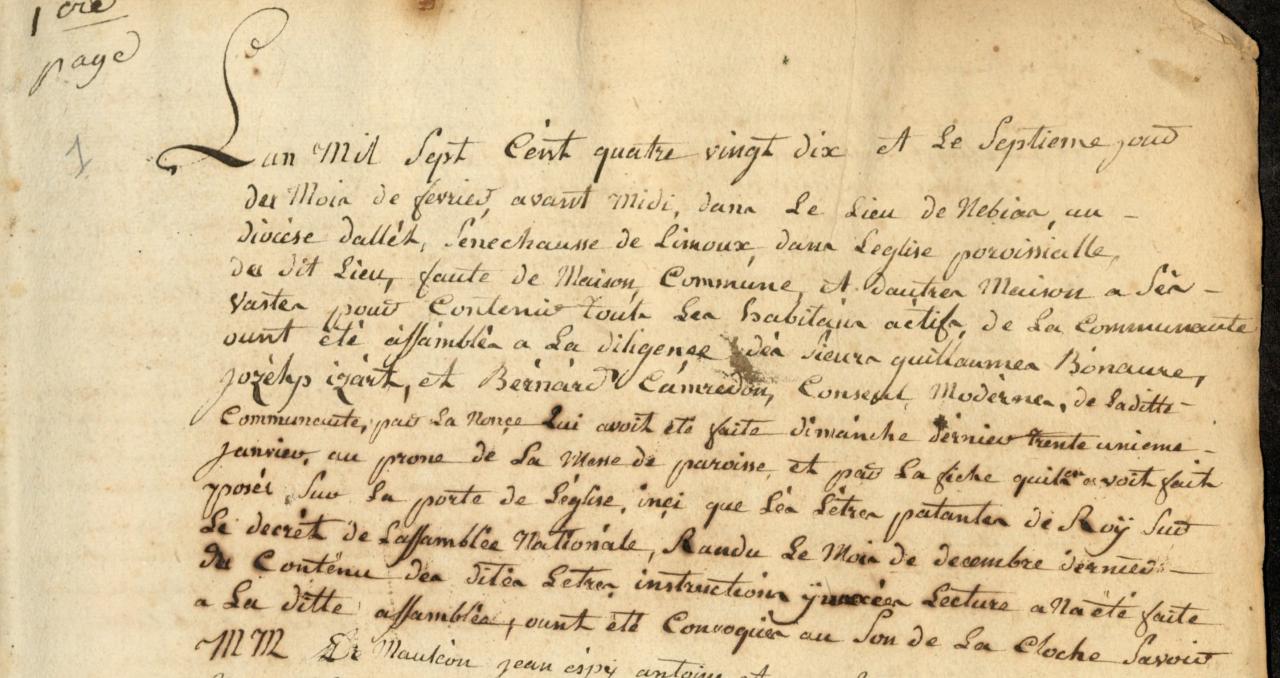 1ere
page
1
Lan Mil Sept Cént quatre vingt dix et Le Septieme jour
des Mois de fevrier, avant Midi, dans Le Lieu de Nebias, au -
diocèse dallét, Senechausse de Limoux, dans Leglise poroissialle,
du dit Lieu, faute de Maison Commune, et dautres Maison a Sés -
vastes pour Contenir touts Les habitains actifs, de La Communaute
ount été assamblés a La diligence dés Sieurs guillaumes Bonaure,
jozéhp izart, et Bérnárd Camredon, Consuls Modérnes, de Laditte -
Communaute, par La Nonçe Qui avoit été faite dimanche dérnier trente unieme -
janvier, au prone de La Messe de paroisse, et par La fiche quils avoit fait
yposér Sur La porte de Léglise, inçi que Lés Létres patantes de Roÿ Sur
Le decrét de Lassamblée Nationále, Randu Le Mois de decembre dérnier -
du Conténu des dités Letres, instructions Lecture a Na été faite
a La ditte assamblés, ount été Convoqués au Son de La Cloche Savoir
MM De Mauléon jean éspÿ antoine